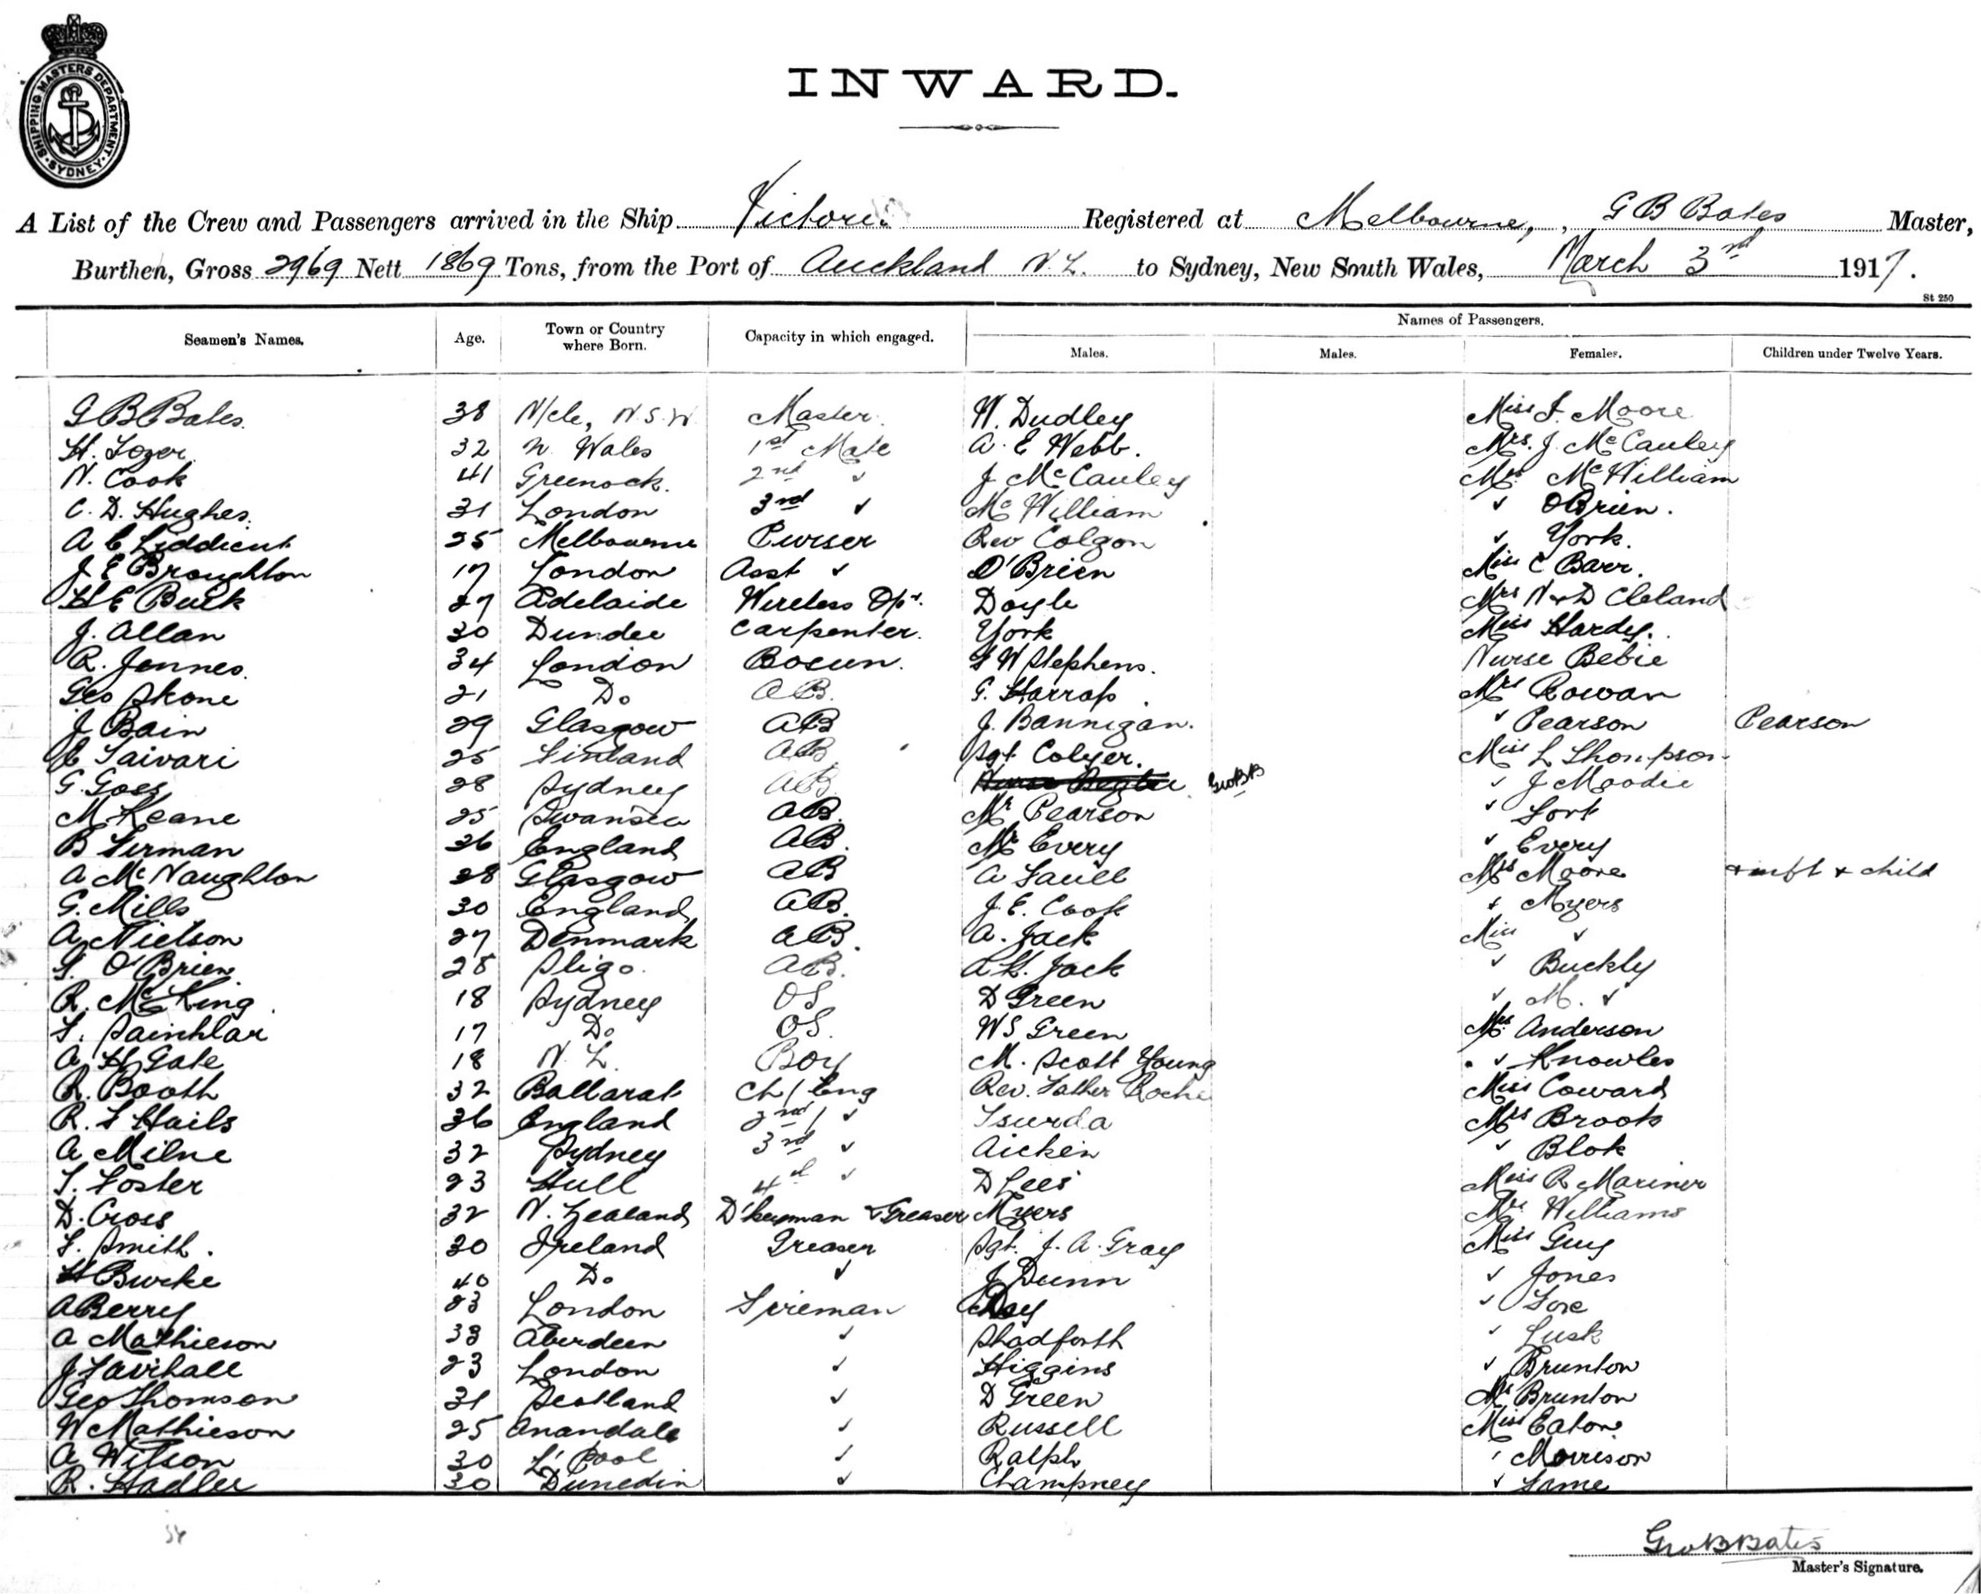 SHIPPING MASTERS DEPARTMENT · SYDNEY ·
INWARD.
A List of the Crew and Passengers arrived in the Ship Victoria Registered at Melbourne, G B Bates Master,
Burthen, Gross 2969 Nett 1869 Tons, from the Port of Auckland N.Z. to Sydney, New South Wales, March 3rd 1917.
St 250
Seamen's Names. Age. Town or Country where Born. Capacity in which engaged. Names of Passengers.
Males. Males. Females. Children under Twelve Years.
G B Bates 38 N/cle, N.S.W Master W. Dudley Miss J. Moore
H. Tozer 32 N Wales 1st Mate A. E Webb. Mrs. J. McCauley
N. Cook 41 Greenock. 2nd ✓ J McCauley Mrs McWilliam
C. D. Hughes 31 London 3rd ✓ McWilliam ✓ OBrien.
A C Liddicut 25 Melbourne Purser Rev Colgon ✓ York.
J E Broughton 17 London Asst ✓ O'Brien Miss C Barr.
H E Buik 27 Adelaide Wireless Opr. Doyle Mrs N & D Cleland
J. Allan 30 Dundee Carpenter. York Miss Hardy.
R. Jennes 34 London Bosun. F W Stephens. Nurse Bebie
Geo Skone 21 Do AB. G. Harrop Mrs Rowan
J Bain 29 Glasgow AB J. Bannigan. ✓ Pearson Pearson
E Saivari 25 Finland AB Sgt Colyer. Miss L Thompson
G. Goss 28 Sydney AB GeoBB ✓ J Moodie
M Keane 25 Swansea AB. Mr Pearson ✓ Lort
B Firman 36 England AB. Mr Every ✓ Every
A McNaughton 28 Glasgow AB A Saull Mrs Moore & inft & child
G. Mills 30 England AB. J. E. Cook ✓ Myers
A Nielson 27 Denmark AB. A. Jack Miss ✓
O'Brien 28 Sligo AB. A H. Jack ✓ Buckly
R. McKing 18 Sydney OS D Green ✓ M. ✓
17 Do OS. W S Green Mrs Anderson
A H Gate 18 N.Z. Boy M. Scott Young ✓ Knowles
R. Booth 32 Ballarat Ch/Eng Rev. Father Roche Miss Coward
R. F Hails 36 England 2nd ✓ Tsurda Mrs Brook
A Milne 32 Sydney 3rd ✓ Aicken ✓ Blok
T. Foster 23 Hull 4th ✓ D Lees Miss R Mariner
D. Crois 32 N. Zealand D'keyman & Greaser Myers Mrs Williams
Smith. 30 Ireland Greaser Sgt. J. A. Gray Miss Guy
H Burke 40 Do ✓ J Dunn ✓ Jones
A Berry 23 London Fireman Day ✓ Lore
A Mathieson 33 Aberdeen ✓ Shadforth ✓ Lusk
J Fairhall 23 London ✓ Higgins ✓ Brunton
Geo Thomson 31 Scotland ✓ D Green Mrs Brunton
W Mathieson 25 Anandale ✓ Russell Miss Eaton
A Wilson 30 L'Pool ✓ Ralph ✓ Morrison
R. Hadler 30 Dunedin ✓ Champney ✓ Lame
GeoBBates
Master's Signature.